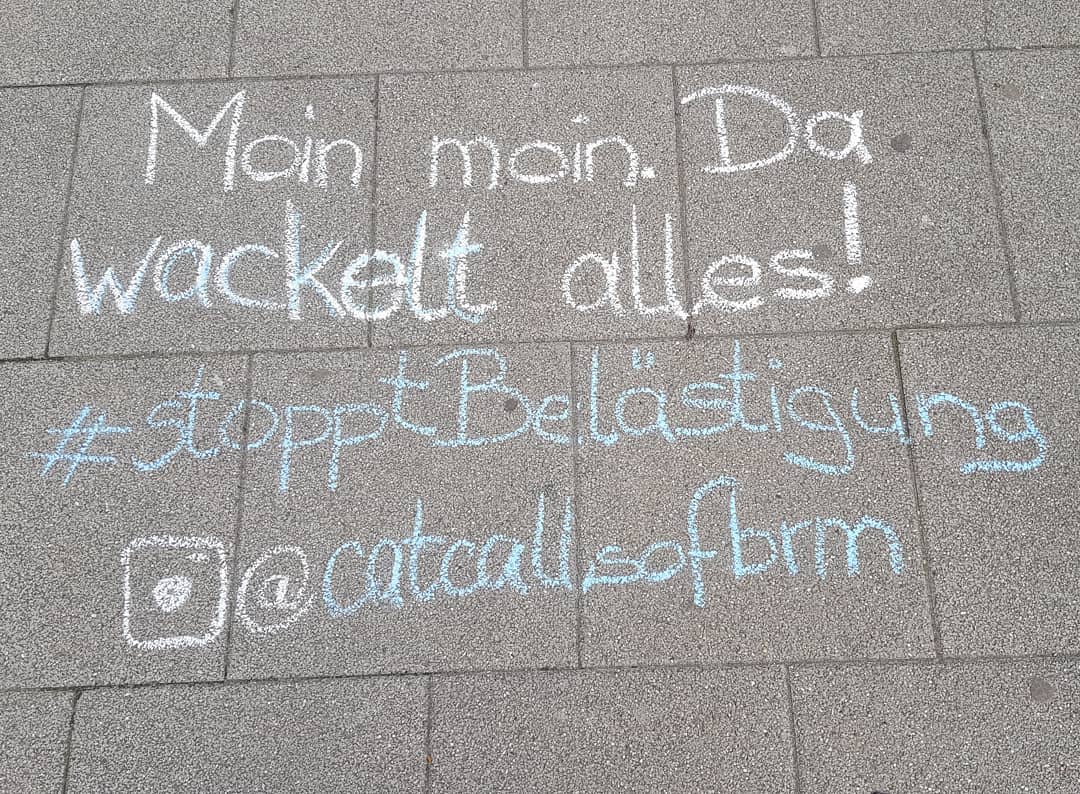 Moin moin. Da
wackelt alles!
#stopptBelästigung
@catcallsofbrm